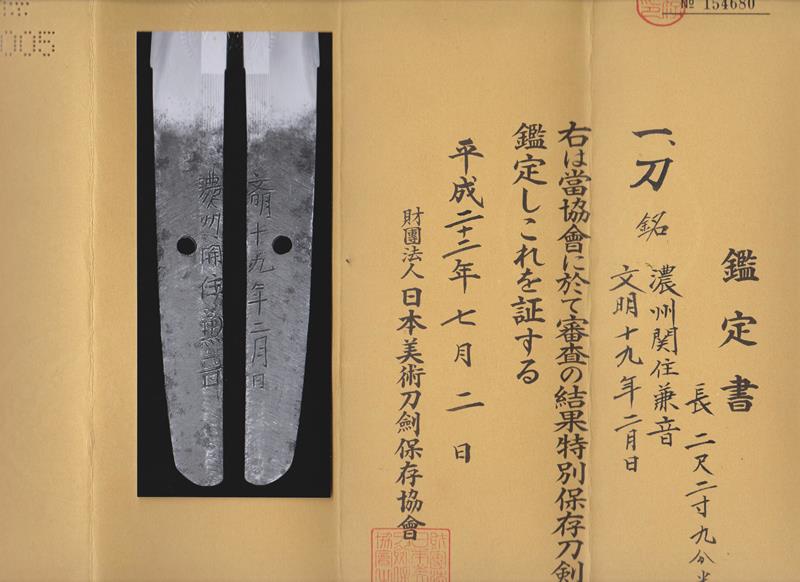 № 154680
005
鑑定書
一、刀 銘 濃州関住兼音
文明十九年二月日
長 二尺二寸九分半
右は當協會に於て審査の結果特別保存刀剣
鑑定しこれを証する
平成二十二年七月二日
財團法人 日本美術刀劍保存協會
文明十九年二月日
濃州関住兼音